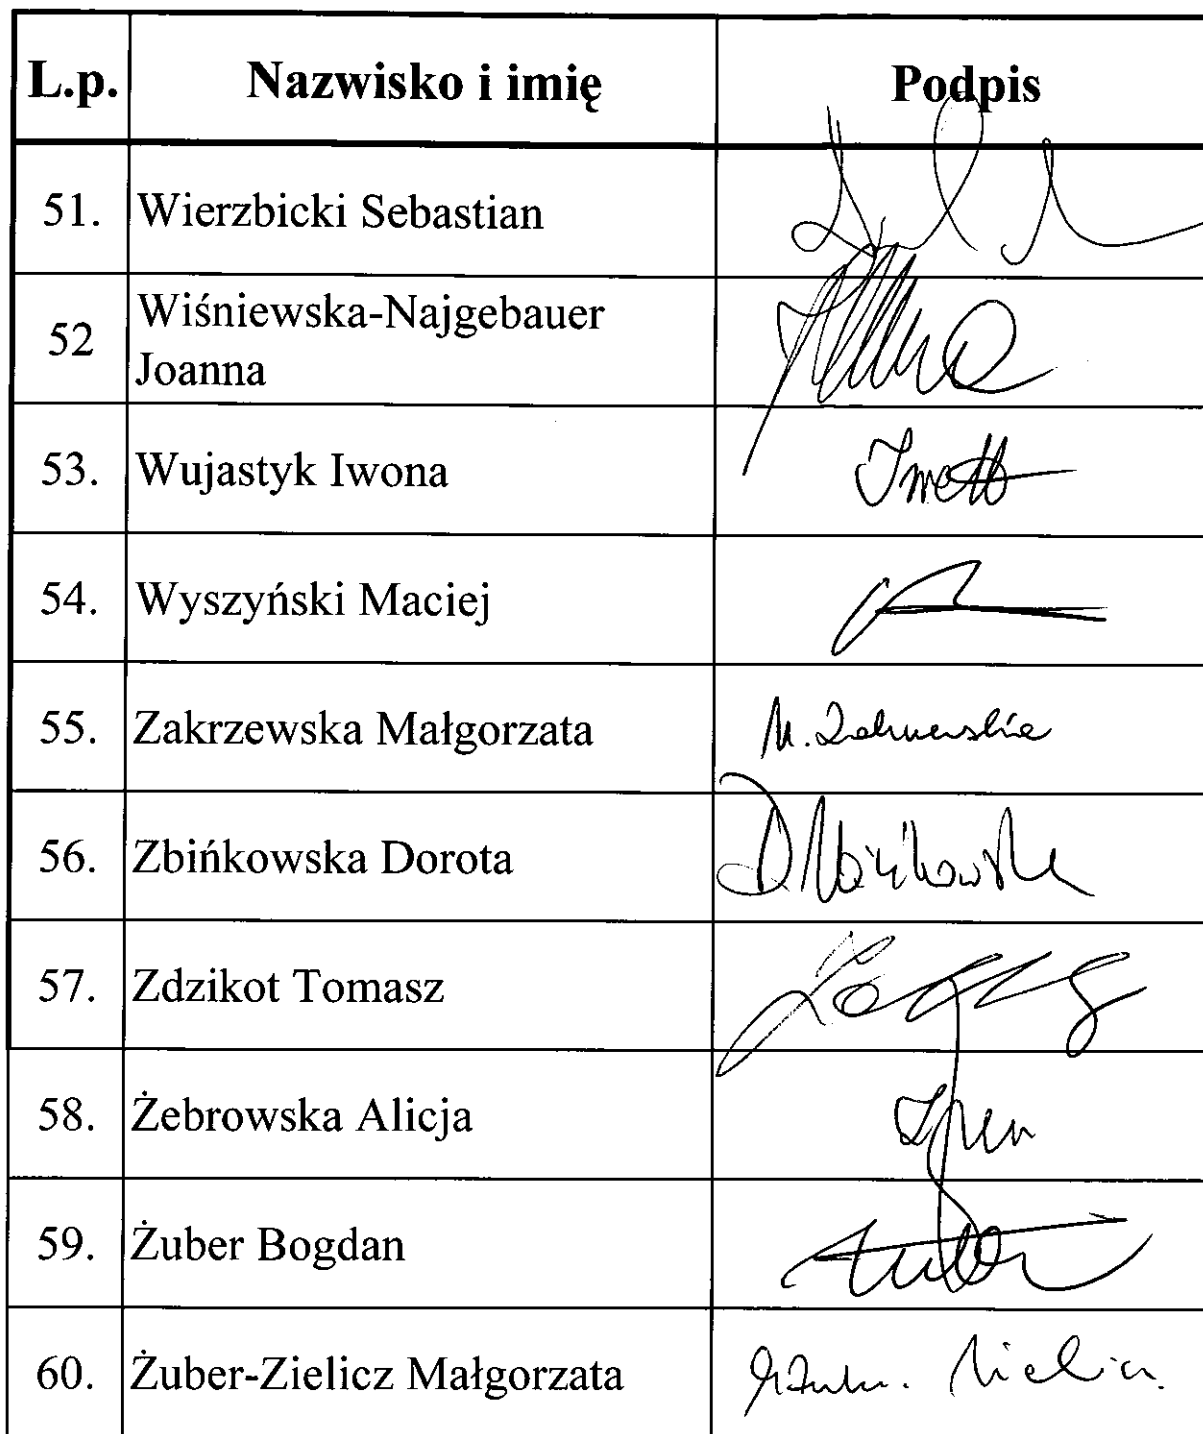 L.p. Nazwisko i imię Podpis
51. Wierzbicki Sebastian
52 Wiśniewska-Najgebauer
Joanna
53. Wujastyk Iwona
54. Wyszyński Maciej
55. Zakrzewska Małgorzata M. Zakrzewska
56. Zbińkowska Dorota D Zbińkowska
57. Zdzikot Tomasz
58. Żebrowska Alicja
59. Żuber Bogdan Żuber
60. Żuber-Zielicz Małgorzata